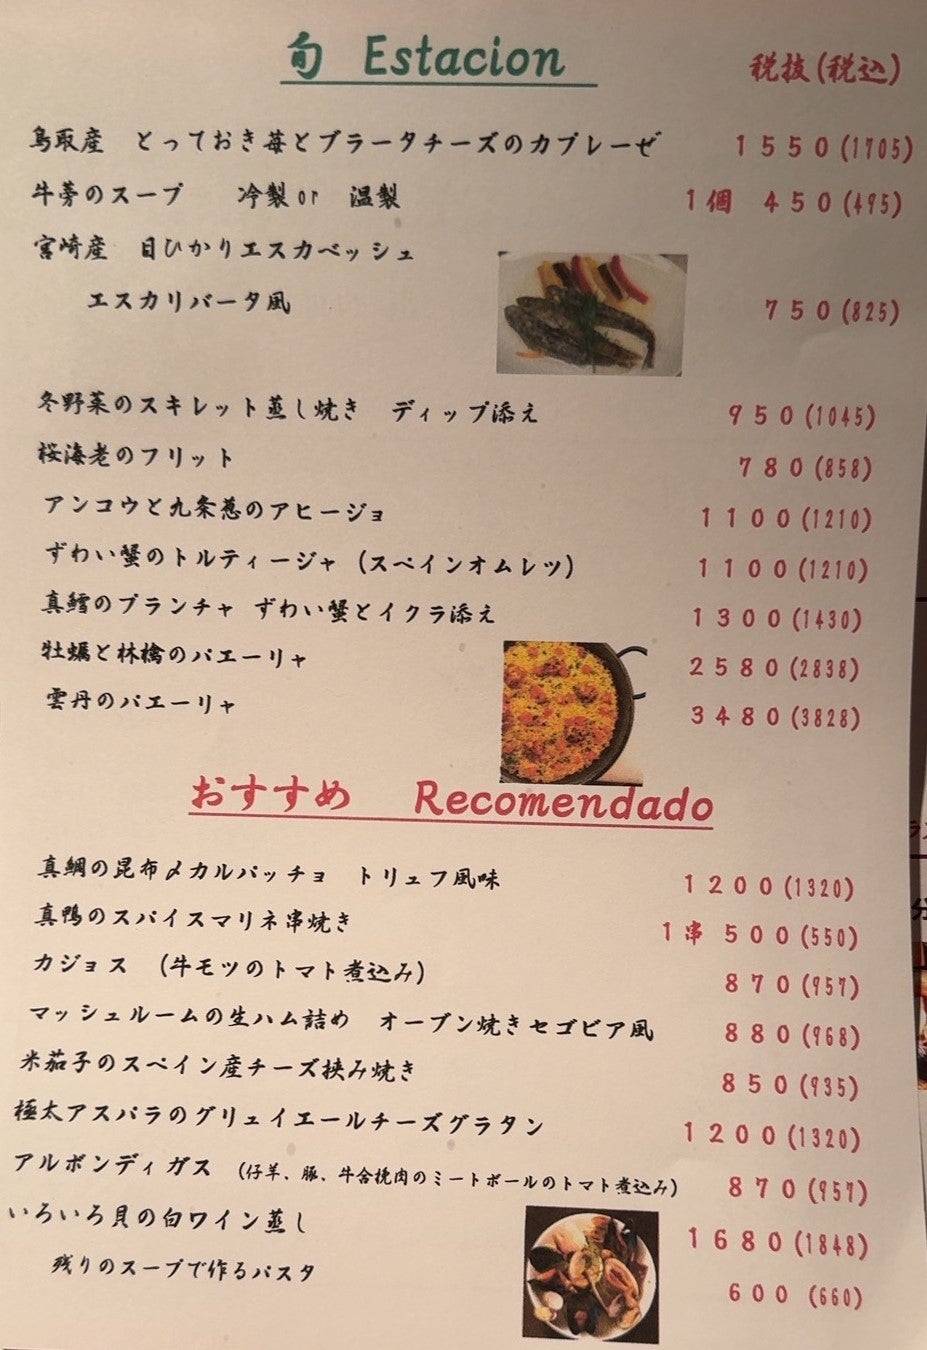 旬 Estacion
税抜(税込)
鳥取産 とっておき苺とブラータチーズのカプレーゼ 1550(1705)
牛蒡のスープ 冷製or 温製 1個 450(495)
宮崎産 目ひかりエスカベッシュ
エスカリバータ風 750(825)
冬野菜のスキレット蒸し焼き ディップ添え 950(1045)
桜海老のフリット 780(858)
アンコウと九条葱のアヒージョ 1100(1210)
ずわい蟹のトルティージャ (スペインオムレツ) 1100(1210)
真鱈のプランチャ ずわい蟹とイクラ添え 1300(1430)
牡蠣と林檎のパエーリャ 2580(2838)
雲丹のパエーリャ 3480(3828)
おすすめ Recomendado
真鯛の昆布〆カルパッチョ トリュフ風味 1200(1320)
真鴨のスパイスマリネ串焼き 1串 500(550)
カジョス (牛モツのトマト煮込み) 870(957)
マッシュルームの生ハム詰め オーブン焼きセゴビア風 880(968)
米茄子のスペイン産チーズ挟み焼き 850(935)
極太アスパラのグリュイエールチーズグラタン 1200(1320)
アルボンディガス (仔羊、豚、牛合挽肉のミートボールのトマト煮込み) 870(957)
いろいろ貝の白ワイン蒸し 1680(1848)
残りのスープで作るパスタ 600 (660)